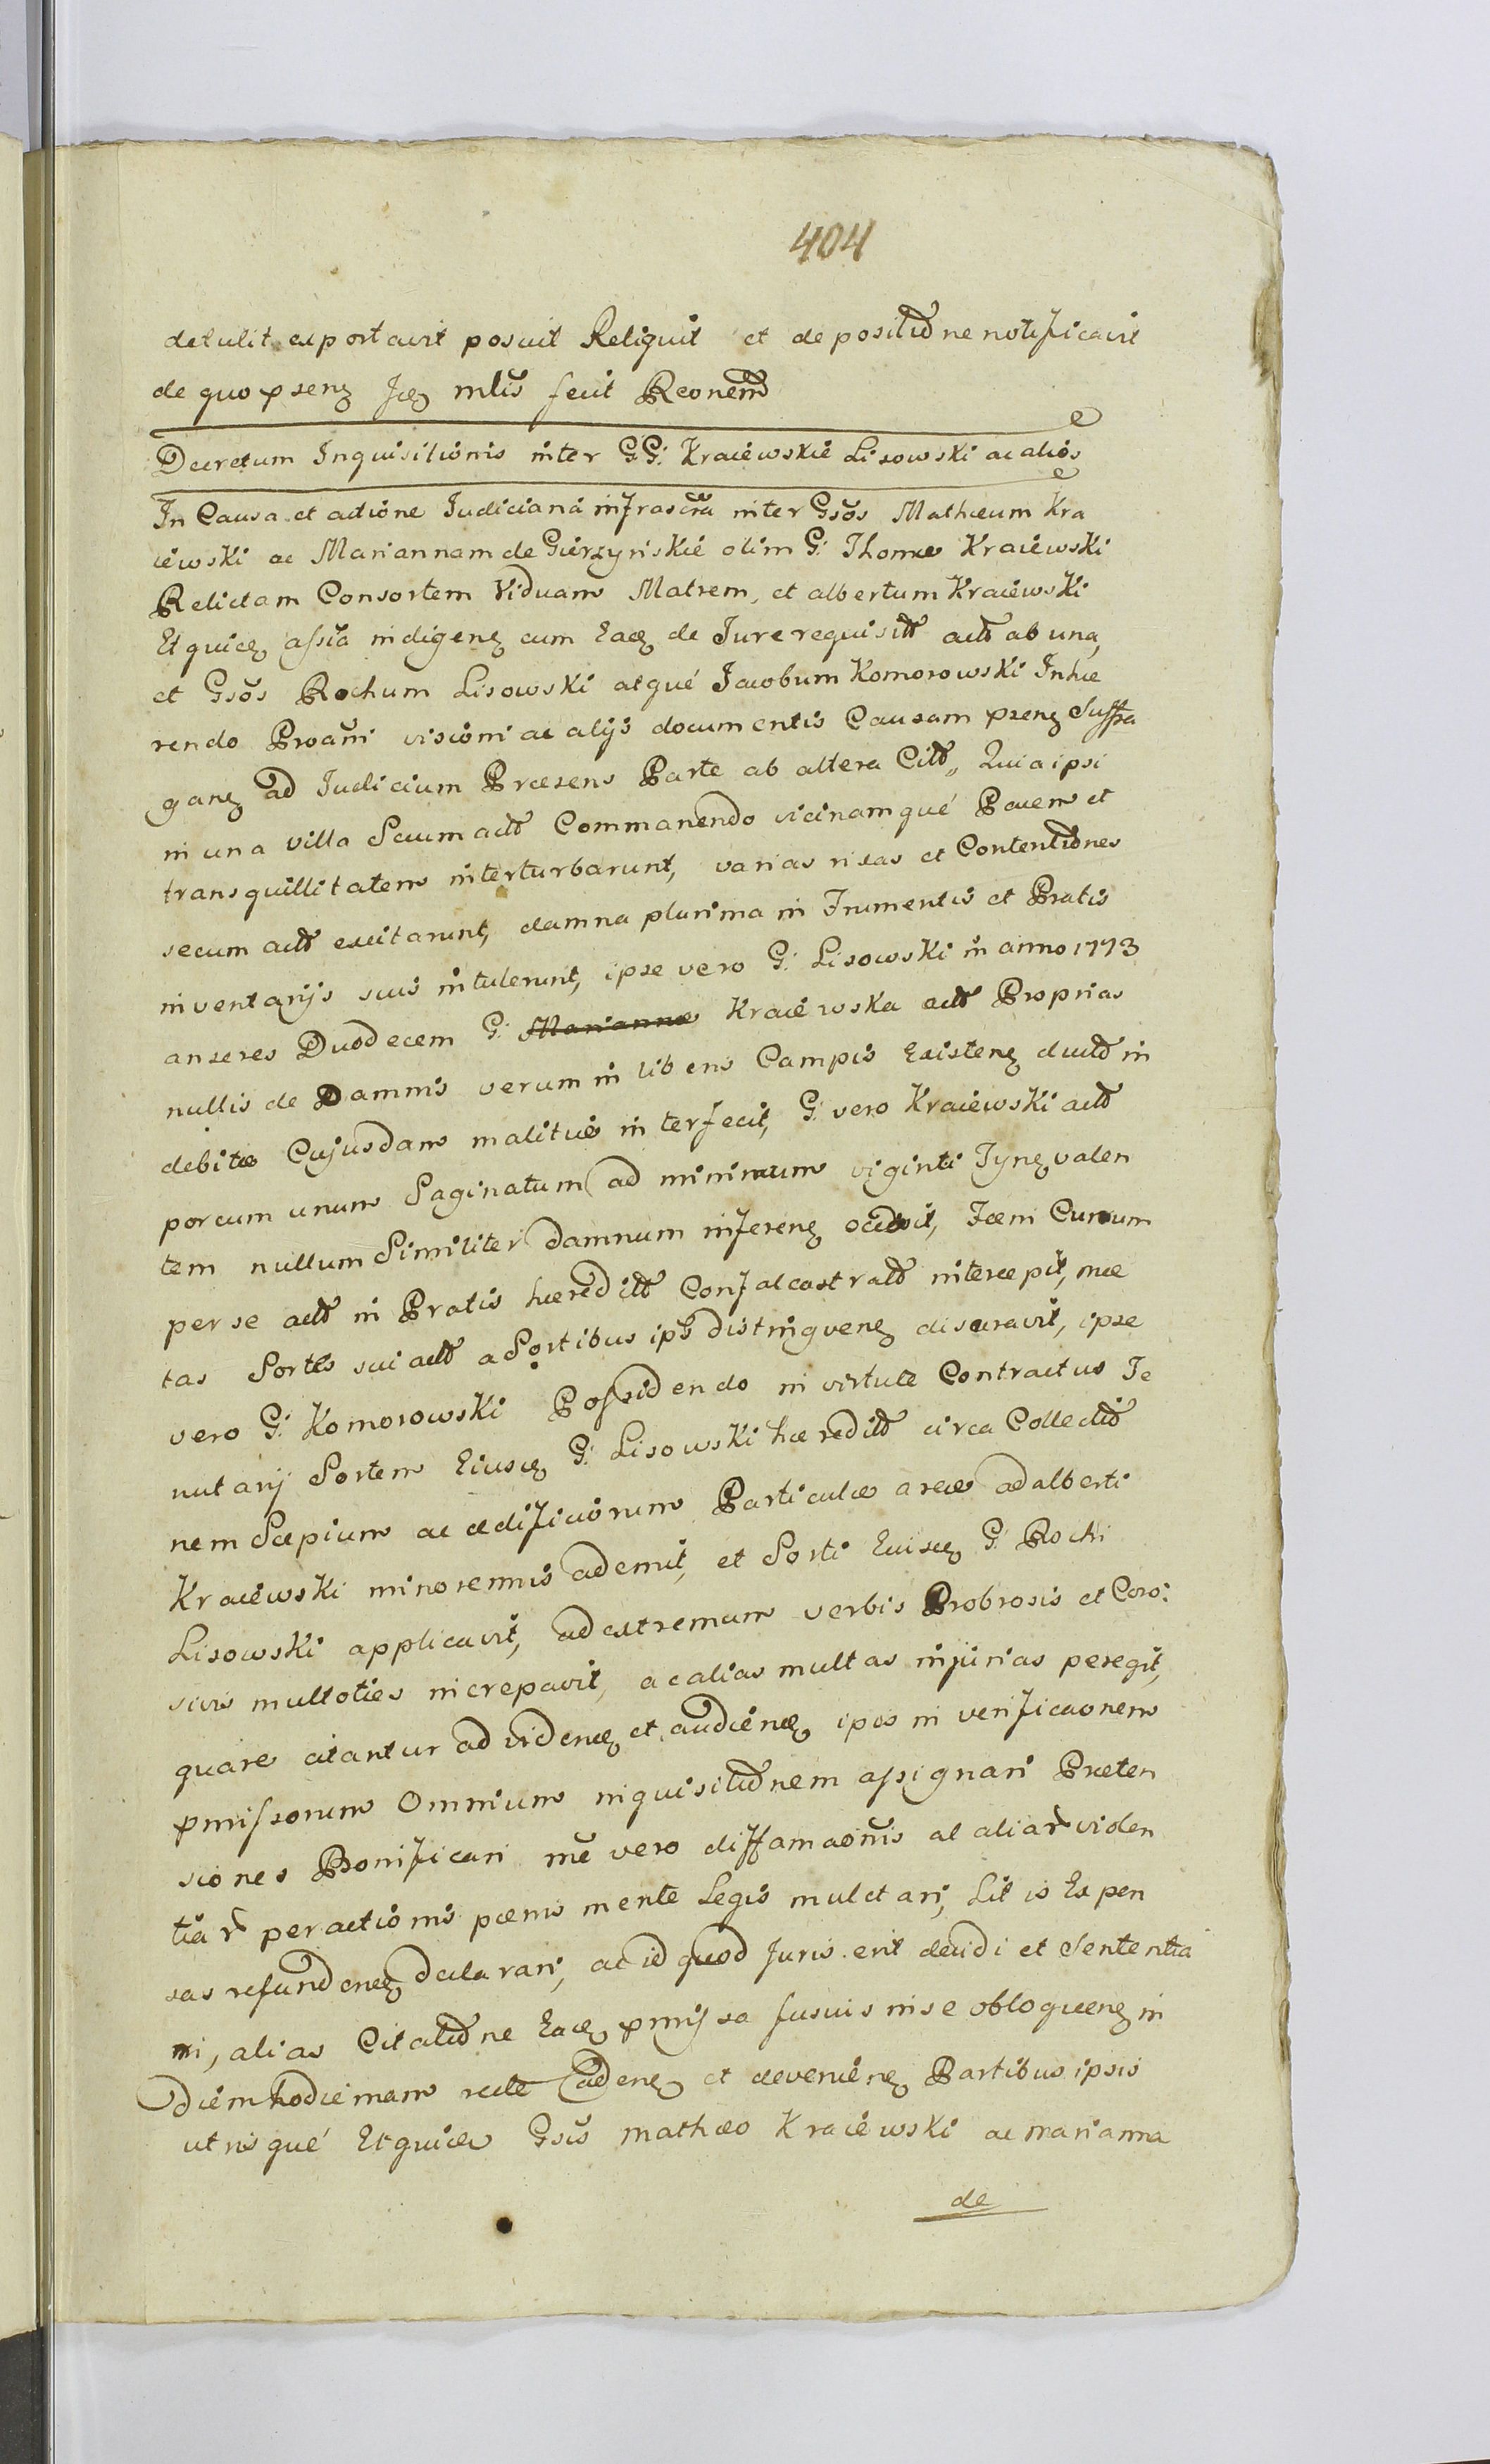 404
detulit exportavit posuit Reliquit et de positione notificavit
de quo psenq Jcq mlis fecit Reonem
Decretum Inquisitionis inter GG: Kraiewskie Lisowski ac alios
In Causa et actione Judiciaria infrascria inter Gsos Mathæum Kra
iewski ac Mariannam de Gierzynskie olim G: Thomæ Kraiewski
Relictam Consortem Viduam Matrem, et albertum Kraiewski
Et quicq assia indigenq cum Eacq de Jure requisit act ab una,
et Gsos Rochum Lisowski atqué Jacobum Komorowski Inhæ
rendo Proani visioni ac alijs documentis Causam psenq Suffra
ganq ad Judicium Præsens Parte ab altera Cit, Quia ipsi
in una villa Secum act Commanendo vicinamqué Pacem et
transquillitatem interturbarunt, varias rixas et Contentiones
secum act excitarunt, damna plurima in Frumentis et Pratis
inventarijs suis intulerunt, ipse vero G: Lisowski in anno 1773
anseres Duodecem G: Mariannæ Kraiewska act Proprias
nullis de Damnis verum in liberis Campis Existenq duct in
debitæ Cujusdam malitiæ interfecit, G: vero Kraiewski act
porcum unum Saginatum ad minimum viginti Tynq valen
tem nullum Similiter damnum inferenq occidit, Fæni Currum
per se act in Pratis hæredit Confalcastrat intercepit, me
tas Sortis sui act a Sortibus ips distinguenq discuravit, ipse
vero G: Komorowski Possidendo in virtute Contractus Te
nutarij Sortem Eiuscq G: Lisowski hæredit circa Collectio
nem Sæpium ac ædificiorum Particulæ areæ adalberti
Kraiewski minorennis ademit, et Sorti Euiscq G: Rochi
Lisowski applicavit, ad extremum verbis Probrosis et Coro:
sivis multoties increpavit, ac alias multas injurias peregit,
quare citantur ad videncq et audiencq ipos in verificaonem
pmissorum Omnium inquisitionem assignari Præten
siones Bonificari me vero diffamaonis al aliar violen
tiar peractionis pænis mente Legis mulctari, Litis Expen
sas refundenq declarari, ac id quod Juris erit decidi et Sententia
ri, alias Citatione Eacq pmissa fusius in se obloquenq in
diem hodiernam recte Cadenq et devenienq Partibus ipsis
utrisqué Et quicq Gsis mathæo Kraiewski ac marianna
de